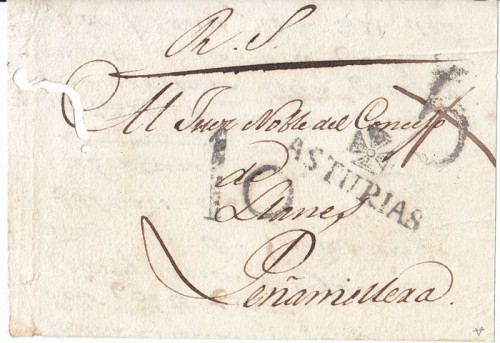 R. S.
Al Juez Noble del Concejo
6
ASTURIAS
16
de
Llanes
Peñamellera.